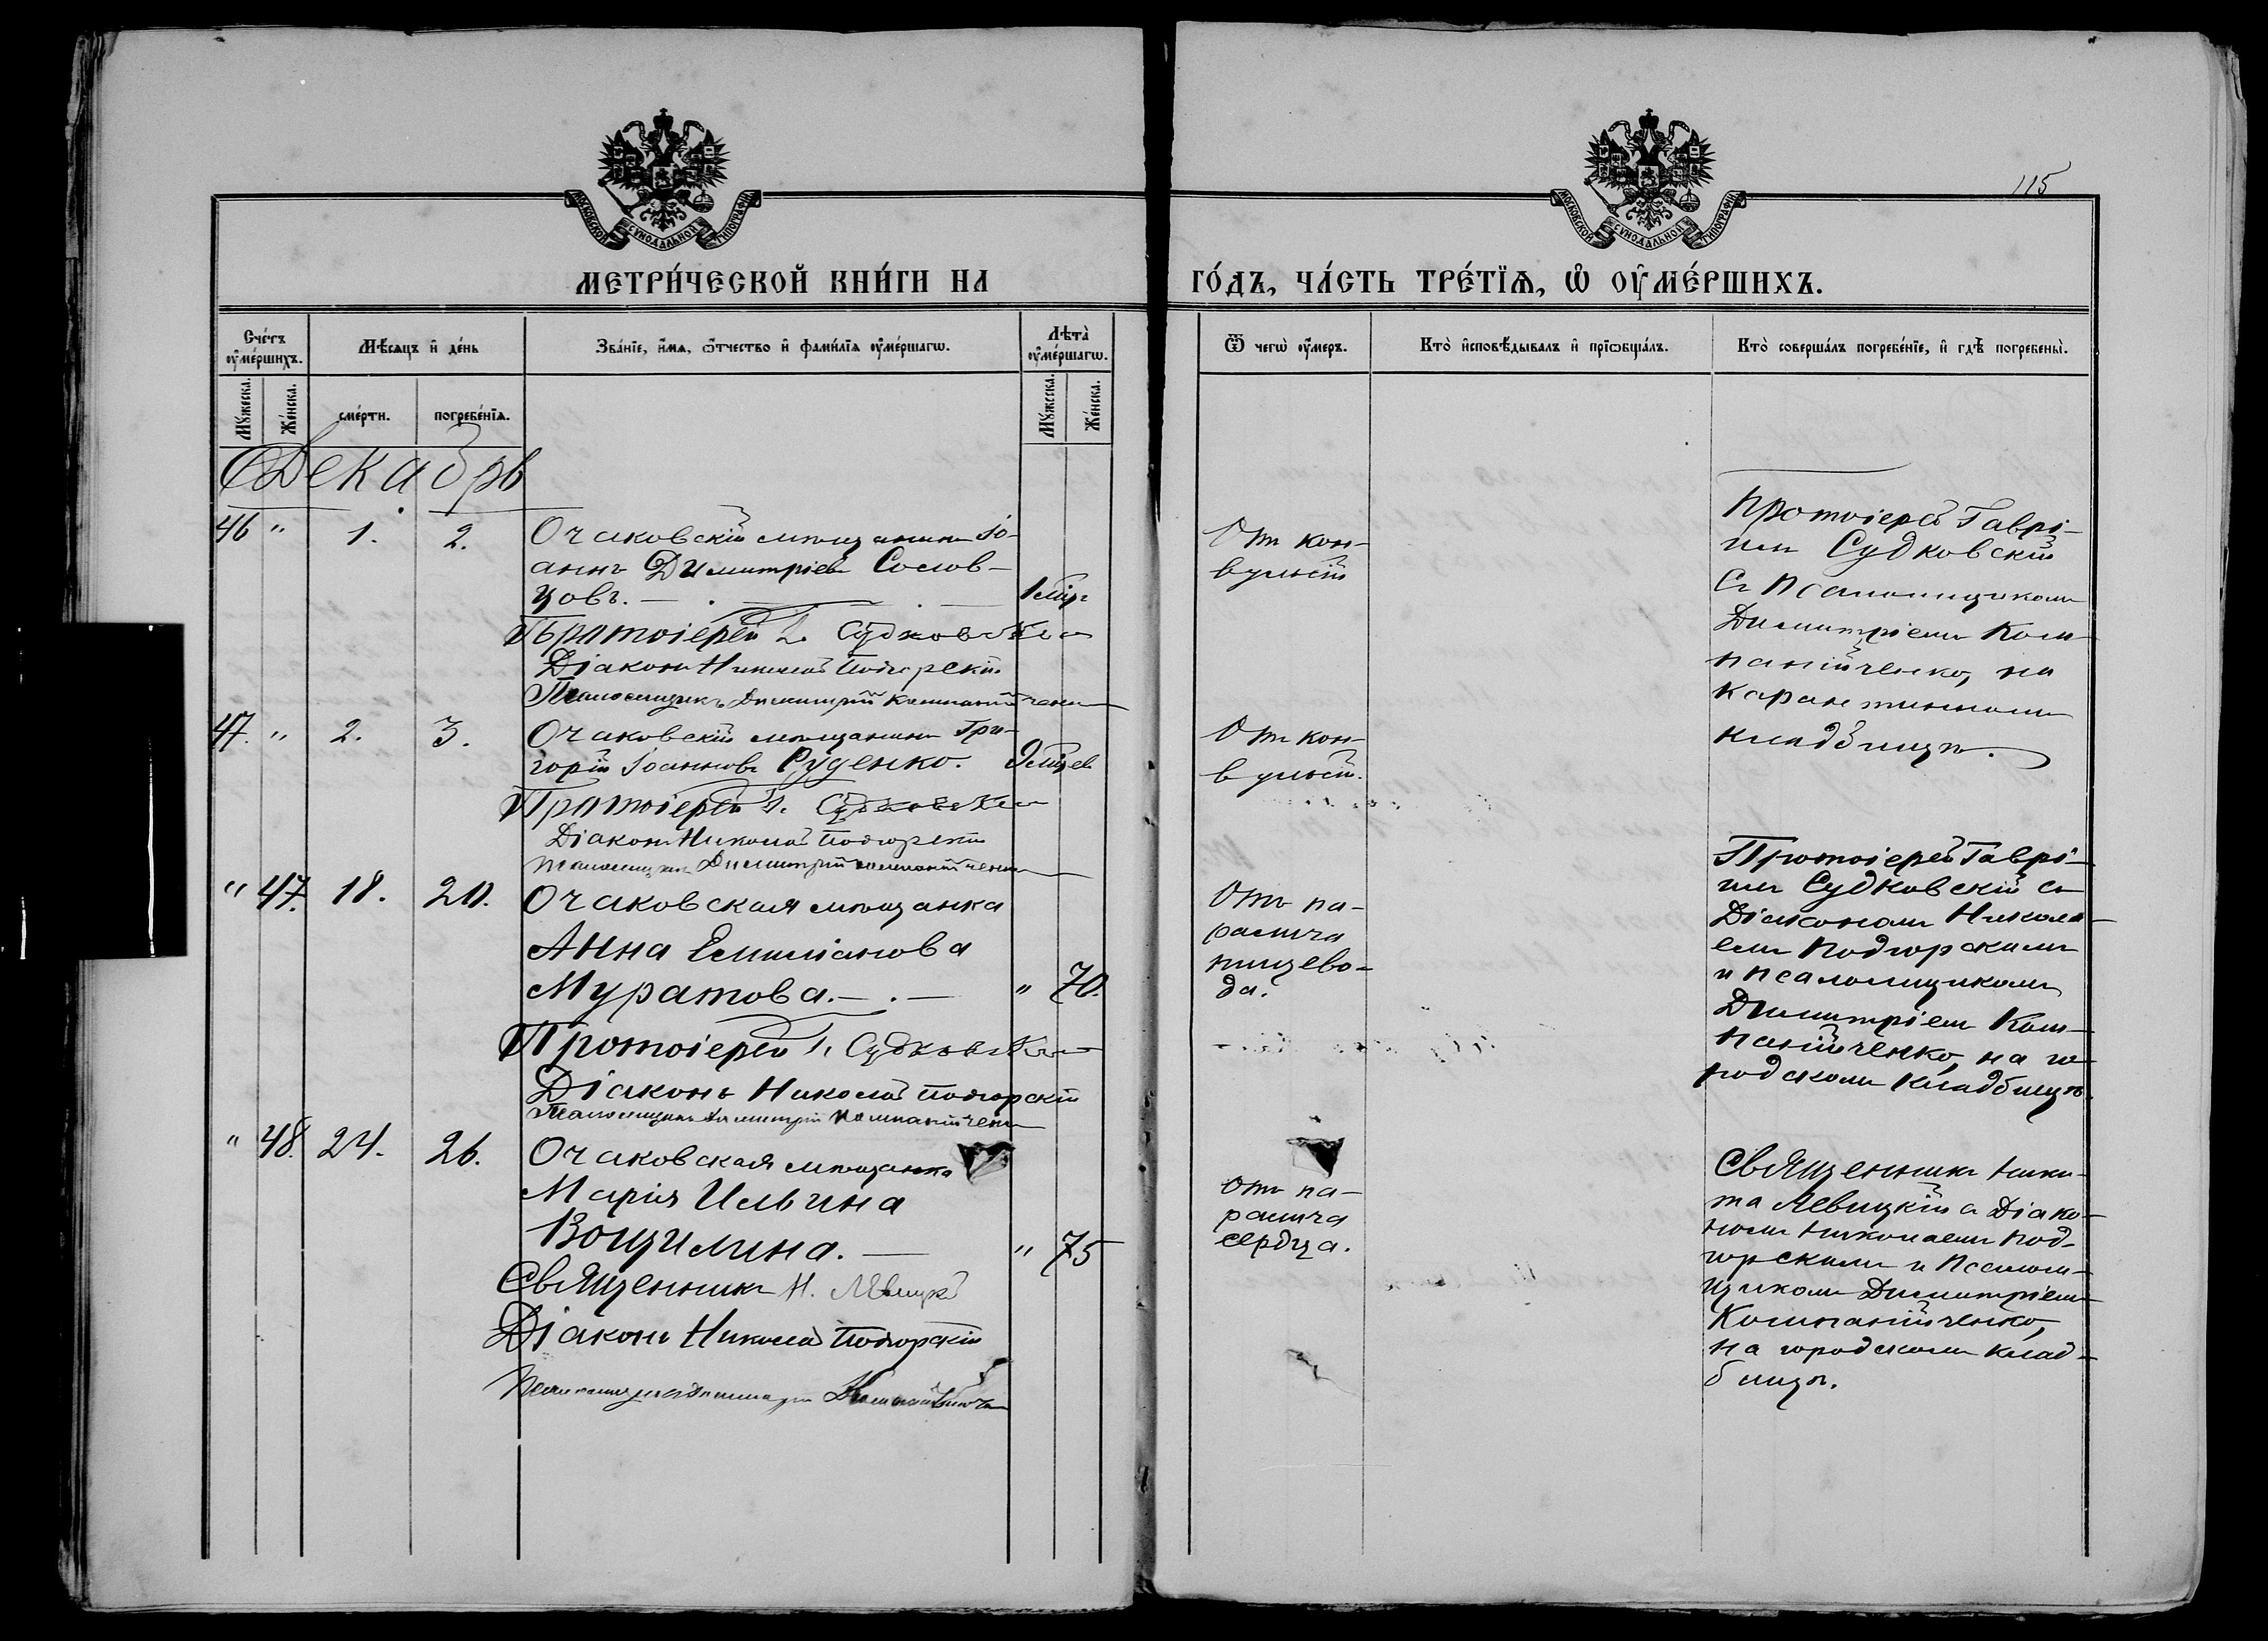 115
МОСКОВСКОЙ СѴНОДАЛЬНОЙ ТИПОГРАФІИ
МОСКОВСКОЙ СѴНОДАЛЬНОЙ ТИПОГРАФІИ
МЕТРИ́ЧЕСКОЙ КНИ́ГИ НА
ГО́ДЪ, ЧА́СТЬ ТРЕ́ТЇѦ, Ѡ҆ ОУ҆МЕ́РШИХЪ.
Сче́тъ оу҆ме́ршихъ.
Мѣ́сѧцъ и҆ де́нь
Зва́нїе, и҆́мѧ, ѻ҆́тчество и҆ фами́лїѧ оу҆ме́ршагѡ.
Лѣ́та оу҆ме́ршагѡ.
Ѿ чегѡ̀ оу҆́меръ.
Кто̀ и҆сповѣ́дывалъ и҆ прїѡбща́лъ.
Кто̀ соверша́лъ погребе́нїе, и҆ гдѣ̀ погребены̀.
Мꙋ́жеска.
Же́нска.
сме́рти.
погребе́нїѧ.
Мꙋ́жеска.
Же́нска.
Декабрь
46 " 1. 2.
Очаковскій мѣщанинъ Іо-
аннъ Димитріевъ Солов-
цовъ.
1 мѣс
Протоіерей Г. Судковскій
Діаконъ Николай Подгорскій
Псаломщикъ Димитрій Компанійченко
От кон-
вульсій
Протоіерей Гаврі-
илъ Судковскій
съ Псаломщикомъ
Димитріемъ Ком-
панійченко, на
карантинномъ
кладбищѣ.
47. " 2. 3.
Очаковскій мѣщанинъ Гри-
горій Іоанновъ Руденко.
9 мѣсцев
Протоіерей Г. Судковскій
Діаконъ Николай Подгорскій
Псаломщикъ Димитрій Компанійченко
От кон-
вульсій.
" 47. 18. 20.
Очаковская мѣщанка
Анна Емиліанова
Муратова.
" 70.
Протоіерей Г. Судковскій
Діаконъ Николай Подгорскій
Псаломщикъ Димитрій Компанійченко
Отъ па-
ралича
пищево-
да.
Протоіерей Гаврі-
илъ Судковскій съ
Діакономъ Никола-
емъ Подгорскимъ
и псаломщикомъ
Димитріемъ Ком-
панійченко, на го-
родскомъ кладбищѣ.
" 48. 24. 26.
Очаковская мѣщанка
Марія Ильина
Вощилина.
" 75
Священникъ Н. Левицкій
Діаконъ Николай Подгорскій
Псаломщикъ Димитрій Компанійченко
Отъ па-
ралича
сердца.
Священникъ Ники-
та Левицкій съ Діако-
номъ Николаемъ Под-
горскимъ и Псалом-
щикомъ Димитріемъ
Компанійченко,
на городскомъ клад-
бищѣ.